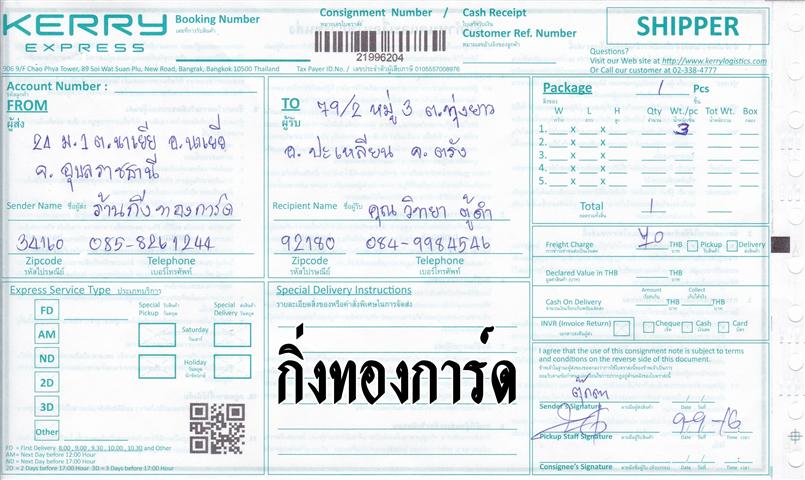 KERRY
EXPRESS
Booking Number
Consignment Number / Cash Receipt
21996204
Customer Ref. Number
SHIPPER
Questions?
Visit our Web site at http://www.kerrylogistics.com
Or Call our customer at 02-338-4777
906 9/F Chao Phya Tower, 89 Soi Wat Suan Plu, New Road, Bangrak, Bangkok 10500 Thailand
Tax Payer ID.No. / เลขประจำตัวผู้เสียภาษี 0105557008976
Account Number :
FROM
ผู้ส่ง
24 ม.1 ต.นาเยีย อ.นาเยีย
จ. อุบลราชธานี
Sender Name ชื่อผู้ส่ง ร้านกิ่งทองการ์ด
34160 085-8261244
Zipcode Telephone
รหัสไปรษณีย์ เบอร์โทรศัพท์
TO 79/2 หมู่ 3 ต.ทุ่งยาว
ผู้รับ
อ. ปะเหลียน จ. ตรัง
Recipient Name ชื่อผู้รับ คุณ วิทยา ตู้ดำ
92180 084-9984546
Zipcode Telephone
รหัสไปรษณีย์ เบอร์โทรศัพท์
Package 1 Pcs
W L H Qty Wt./pc Tot Wt. Box
1. x x 3
2. x x
3. x x
4. x x
5. x x
Total 1
Freight Charge 70 THB Pickup Delivery
Declared Value in THB THB
Amount Collect
Cash On Delivery THB THB
INVR (Invoice Return) Cheque Cash Card
I agree that the use of this consignment note is subject to terms
and conditions on the reverse side of this document.
Sender's Signature Date วันที่
Pickup Staff Signature Date วันที่ Time เวลา
Consignee's Signature Date วันที่ Time เวลา
Express Service Type ประเภทบริการ
FD
AM
ND
2D
3D
Other
Special Pickup
Special Delivery
Saturday
วันเสาร์
Holiday
FD = First Delivery 8.00 , 9.00 , 9.30 , 10.00 , 10.30 and Other
AM= Next Day before 12:00 Hour
ND = Next Day before 17:00 Hour
2D = 2 Days before 17:00 Hour 3D = 3 Days before 17:00 Hour
Special Delivery Instructions
รายละเอียดสิ่งของหรือคำสั่งพิเศษในการจัดส่ง
กิ่งทองการ์ด